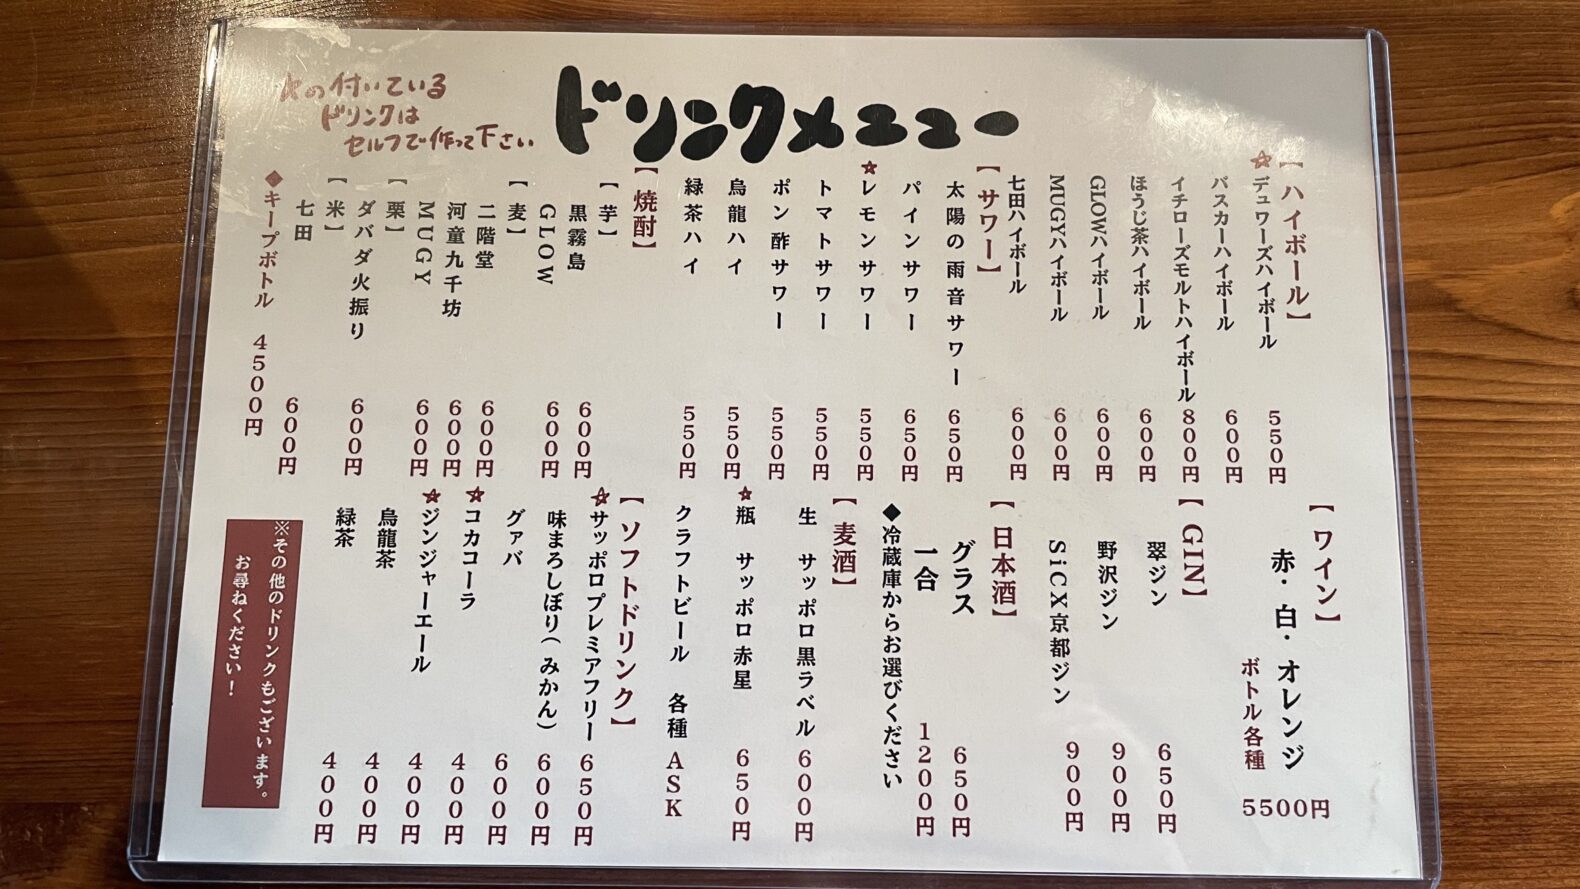 ドリンクメニュー
☆の付いている
ドリンクは
セルフで作って下さい
【ハイボール】
☆デュワーズハイボール 550円
パスカーハイボール 600円
イチローズモルトハイボール 800円
ほうじ茶ハイボール 600円
GLOWハイボール 600円
MUGYハイボール 600円
七田ハイボール 600円
【サワー】
太陽の雨音サワー 650円
パインサワー 650円
☆レモンサワー 550円
トマトサワー 550円
ポン酢サワー 550円
烏龍ハイ 550円
緑茶ハイ 550円
【焼酎】
【芋】
黒霧島 600円
GLOW 600円
【麦】
二階堂 600円
河童九千坊 600円
MUGY 600円
【栗】
ダバダ火振り 600円
【米】
七田 600円
◆キープボトル 4500円
【ワイン】
赤・白・オレンジ
ボトル各種 5500円
【GIN】
翠ジン 650円
野沢ジン 900円
SiCX京都ジン 900円
【日本酒】
グラス 650円
一合 1200円
◆冷蔵庫からお選びください
【麦酒】
生 サッポロ黒ラベル 600円
☆瓶 サッポロ赤星 650円
クラフトビール 各種 ASK
【ソフトドリンク】
☆サッポロプレミアフリー 650円
味まろしぼり(みかん) 600円
グァバ 600円
☆コカコーラ 400円
☆ジンジャーエール 400円
烏龍茶 400円
緑茶 400円
※その他のドリンクもございます。
お尋ねください！